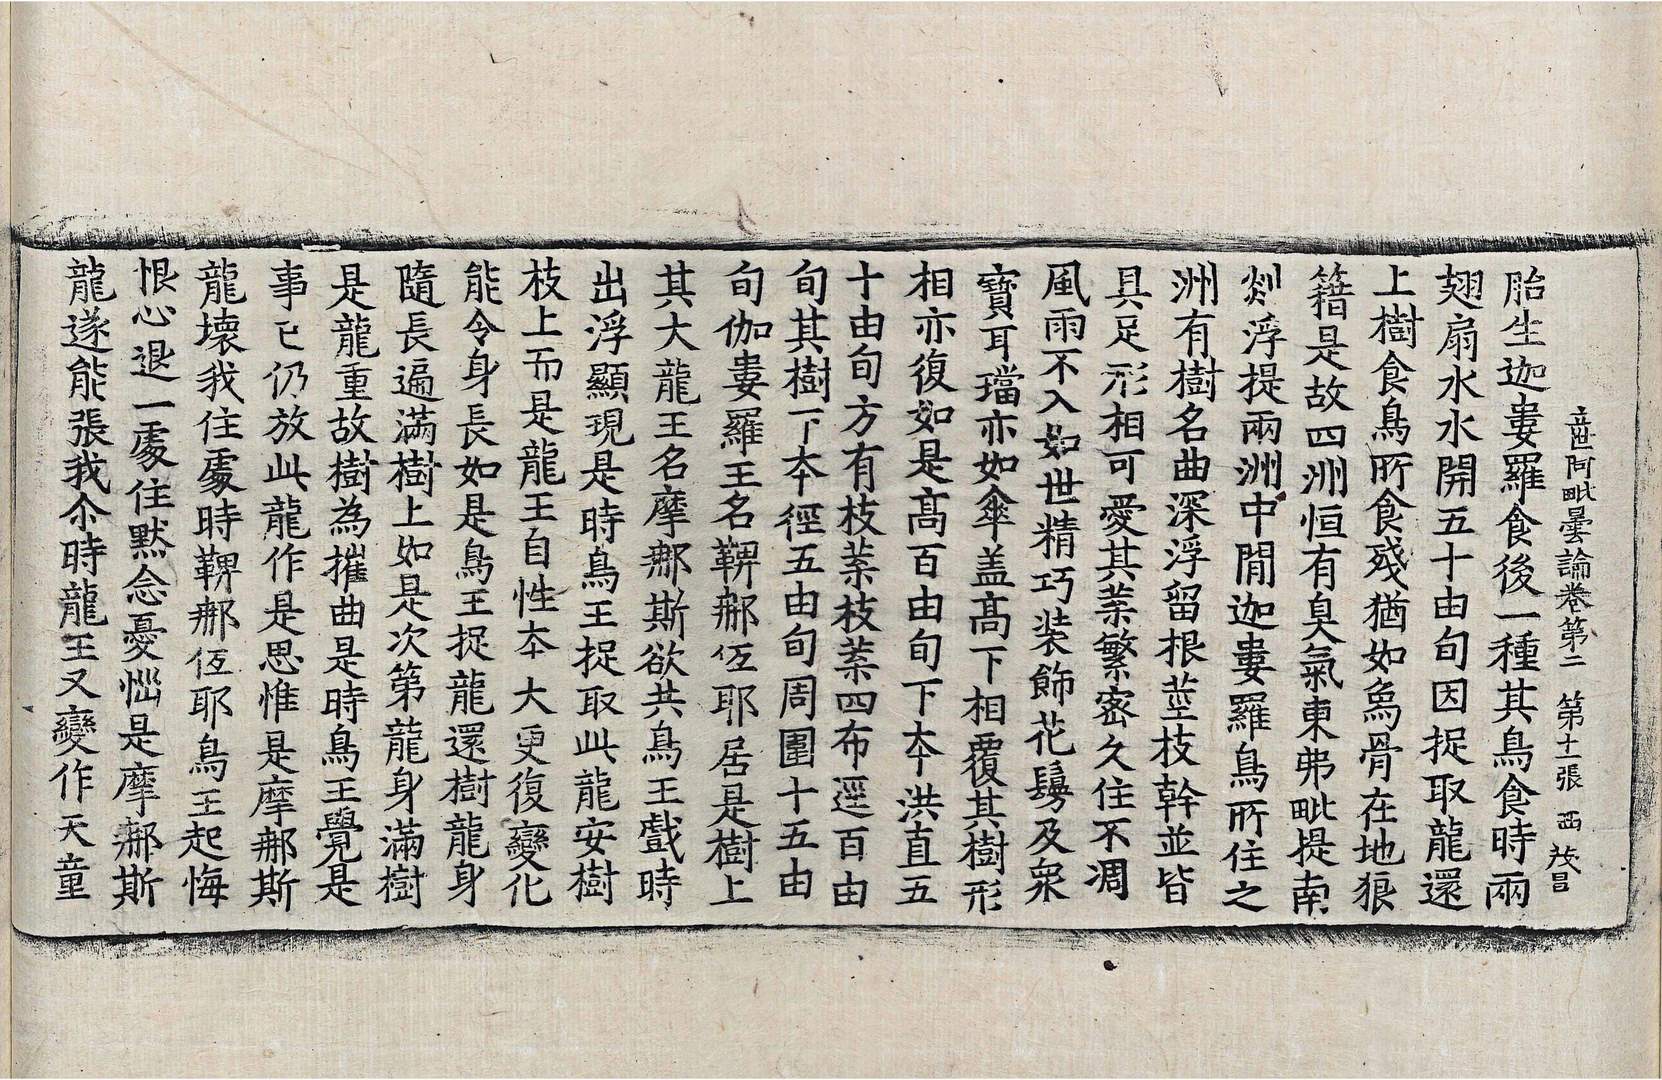 立世阿毗曇論卷第二　第十一張　西　茂昌
胎生迦婁羅食後一種其鳥食時兩
翅扇水水開五十由旬因捉取龍還
上樹食鳥所食殘猶如魚骨在地狼
籍是故四洲恒有臭氣東弗毗提南
剡浮提兩洲中間迦婁羅鳥所住之
洲有樹名曲深浮留根莖枝幹並皆
具足形相可愛其葉繁密久住不凋
風雨不入如世精巧装飾花鬘及衆
寶耳璫亦如傘盖髙下相覆其樹形
相亦復如是髙百由旬下夲洪直五
十由旬方有枝葉枝葉四布逕百由
旬其樹下夲徑五由旬周圍十五由
旬伽婁羅王名鞞郍伍耶居是樹上
其大龍王名摩郍斯欲共鳥王戲時
出浮顯現是時鳥王捉取此龍安樹
枝上而是龍王自性夲大更復變化
能令身長如是鳥王捉龍還樹龍身
隨長遍滿樹上如是次第龍身滿樹
是龍重故樹為摧曲是時鳥王覺是
事已仍放此龍作是思惟是摩郍斯
龍壊我住處時鞞郍伍耶鳥王起悔
恨心退一處住默念憂惱是摩郍斯
龍遂能張我尒時龍王又變作天童